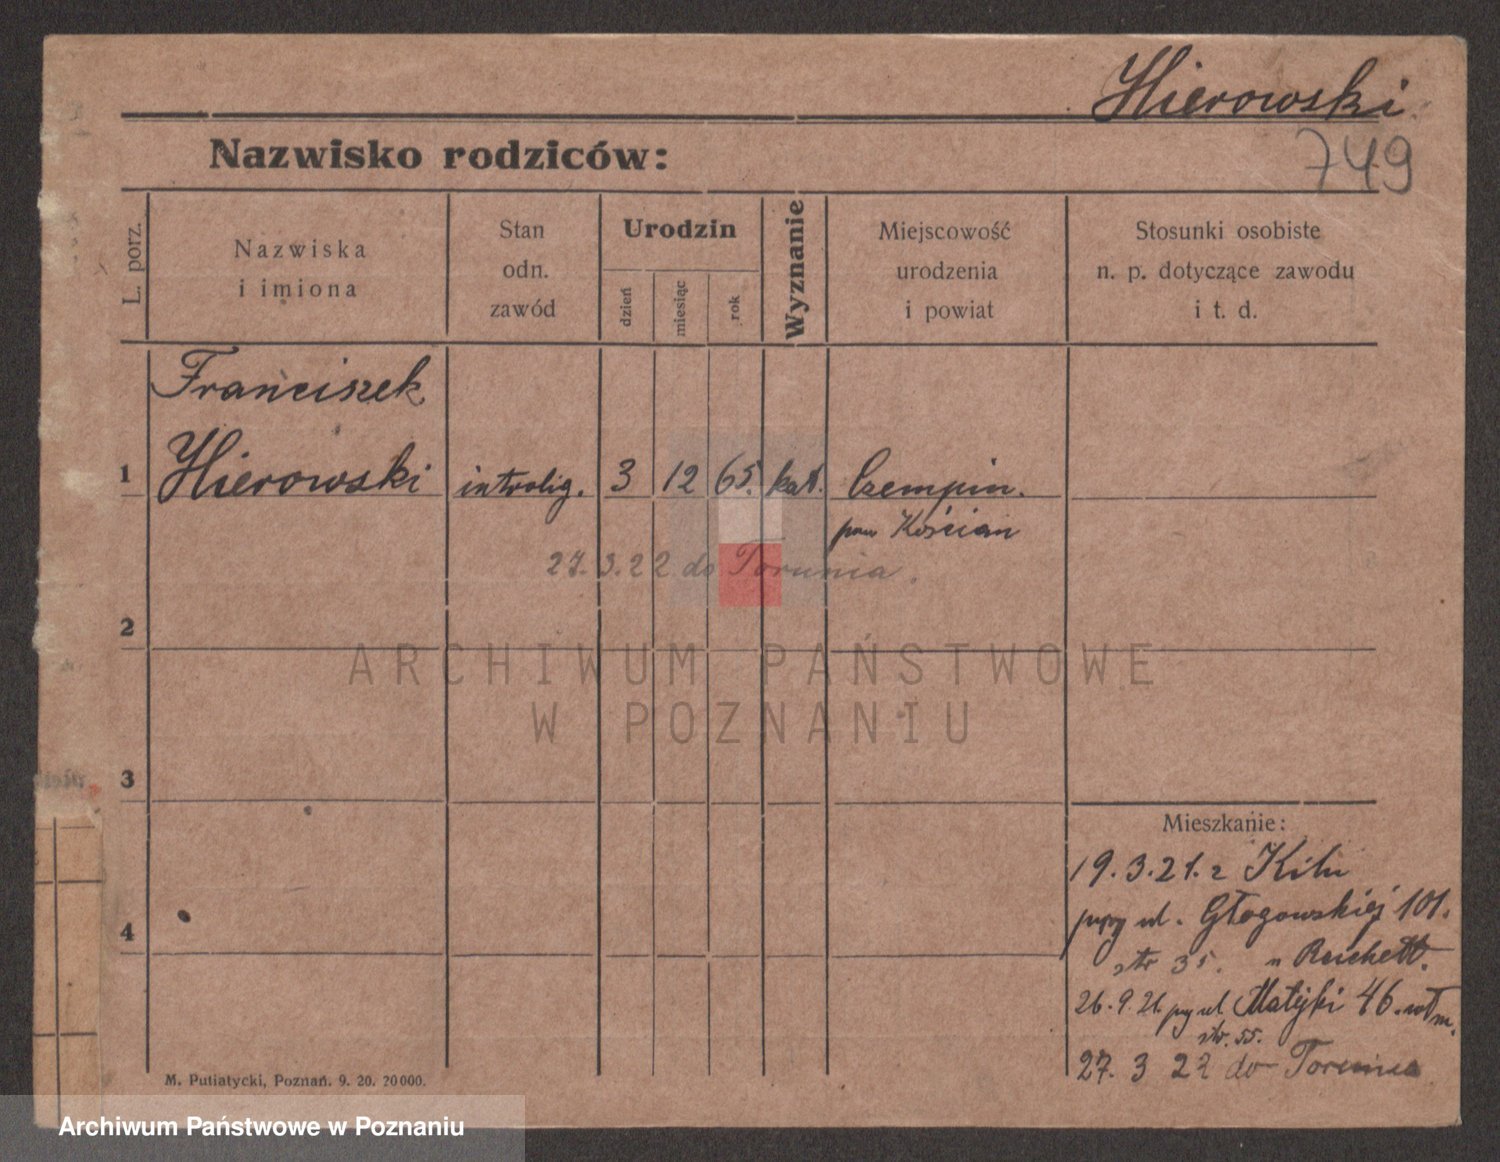 Hierowski
749
Nazwisko rodziców:
L. porz.
Nazwiska
i imiona
Stan
odn.
zawód
Urodzin
dzień
miesiąc
rok
Wyznanie
Miejscowość
urodzenia
i powiat
Stosunki osobiste
n. p. dotyczące zawodu
i t. d.
Franciszek
1 Hierowski introlig. 3 12 65. kat. Czempin.
pow Kościan
27. 3. 22 do Torunia.
2
ARCHIWUM PAŃSTWOWE
W POZNANIU
3
Mieszkanie:
19. 3. 21. z
ul. Głogowskiej 101.
4
str 35.
26. 9. 21 ul Matejki 46.
str. 55.
27. 3 22 do Torunia
M. Putiatycki, Poznań. 9. 20. 20000.
Archiwum Państwowe w Poznaniu